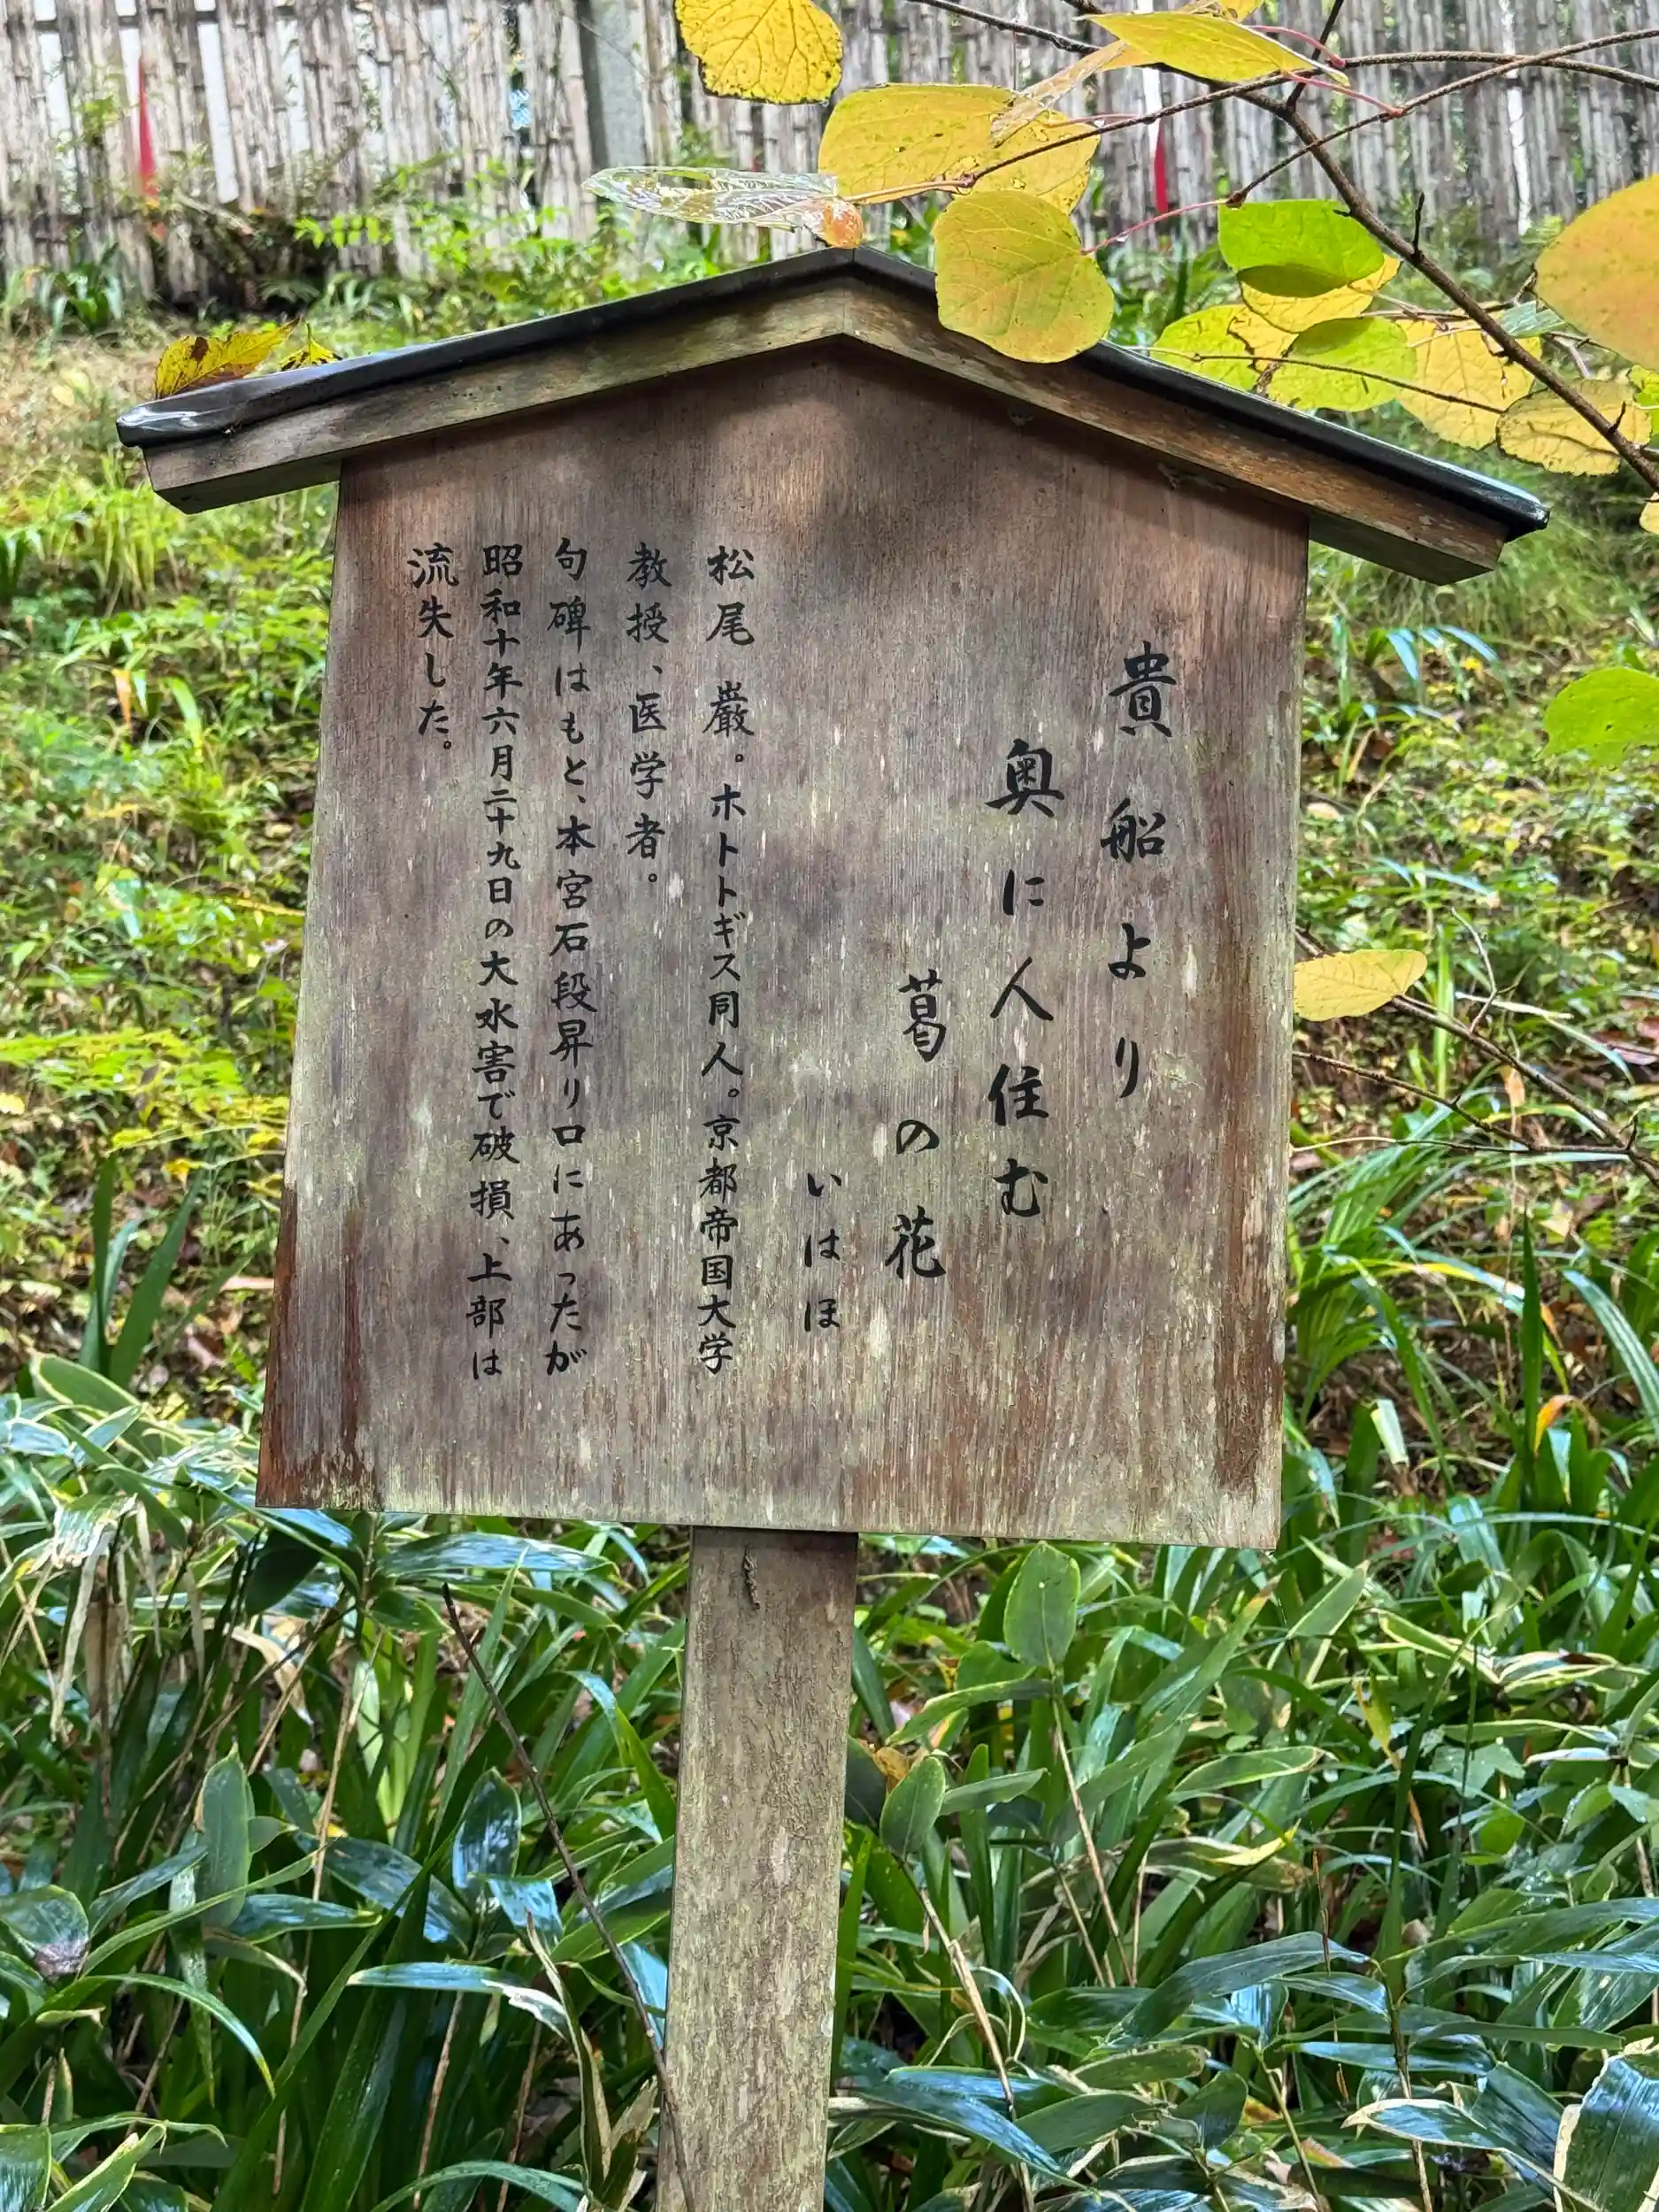 貴船より
奥に人住む
葛の花
いはほ
松尾 巌。ホトトギス同人。京都帝国大学
教授、医学者。
句碑はもと、本宮石段昇り口にあったが
昭和十年六月二十九日の大水害で破損、上部は
流失した。